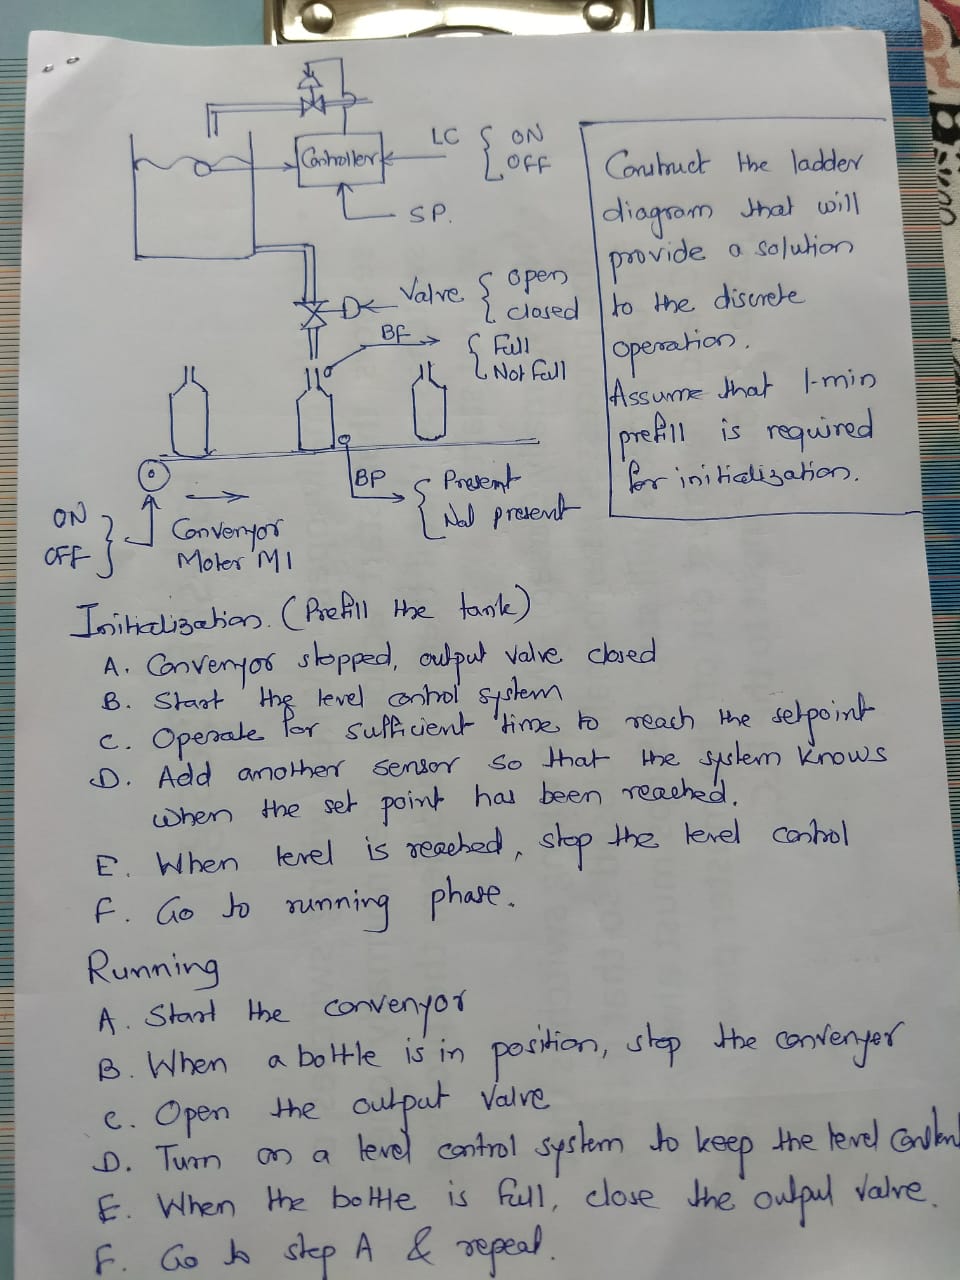 Controller
LC { ON
OFF
SP.
Valve { open
closed
BF
{ Full
Not Full
BP
{ Present
Not present
ON
OFF }
Convenyor
Motor M1
Construct the ladder
diagram that will
provide a solution
to the discrete
operation.
Assume that 1-min
prefill is required
for initialization.
Initialization. (Prefill the tank)
A. Convenyor stopped, output valve closed
B. Start the level control system
C. Operate for sufficient time to reach the setpoint
D. Add another sensor so that the system knows
when the set point has been reached.
E. When level is reached, stop the level control
F. Go to running phase.
Running
A. Start the convenyor
B. When a bottle is in position, stop the convenyer
C. Open the output valve
D. Turn on a level control system to keep the level
E. When the bottle is full, close the output valve.
F. Go to step A & repeat.